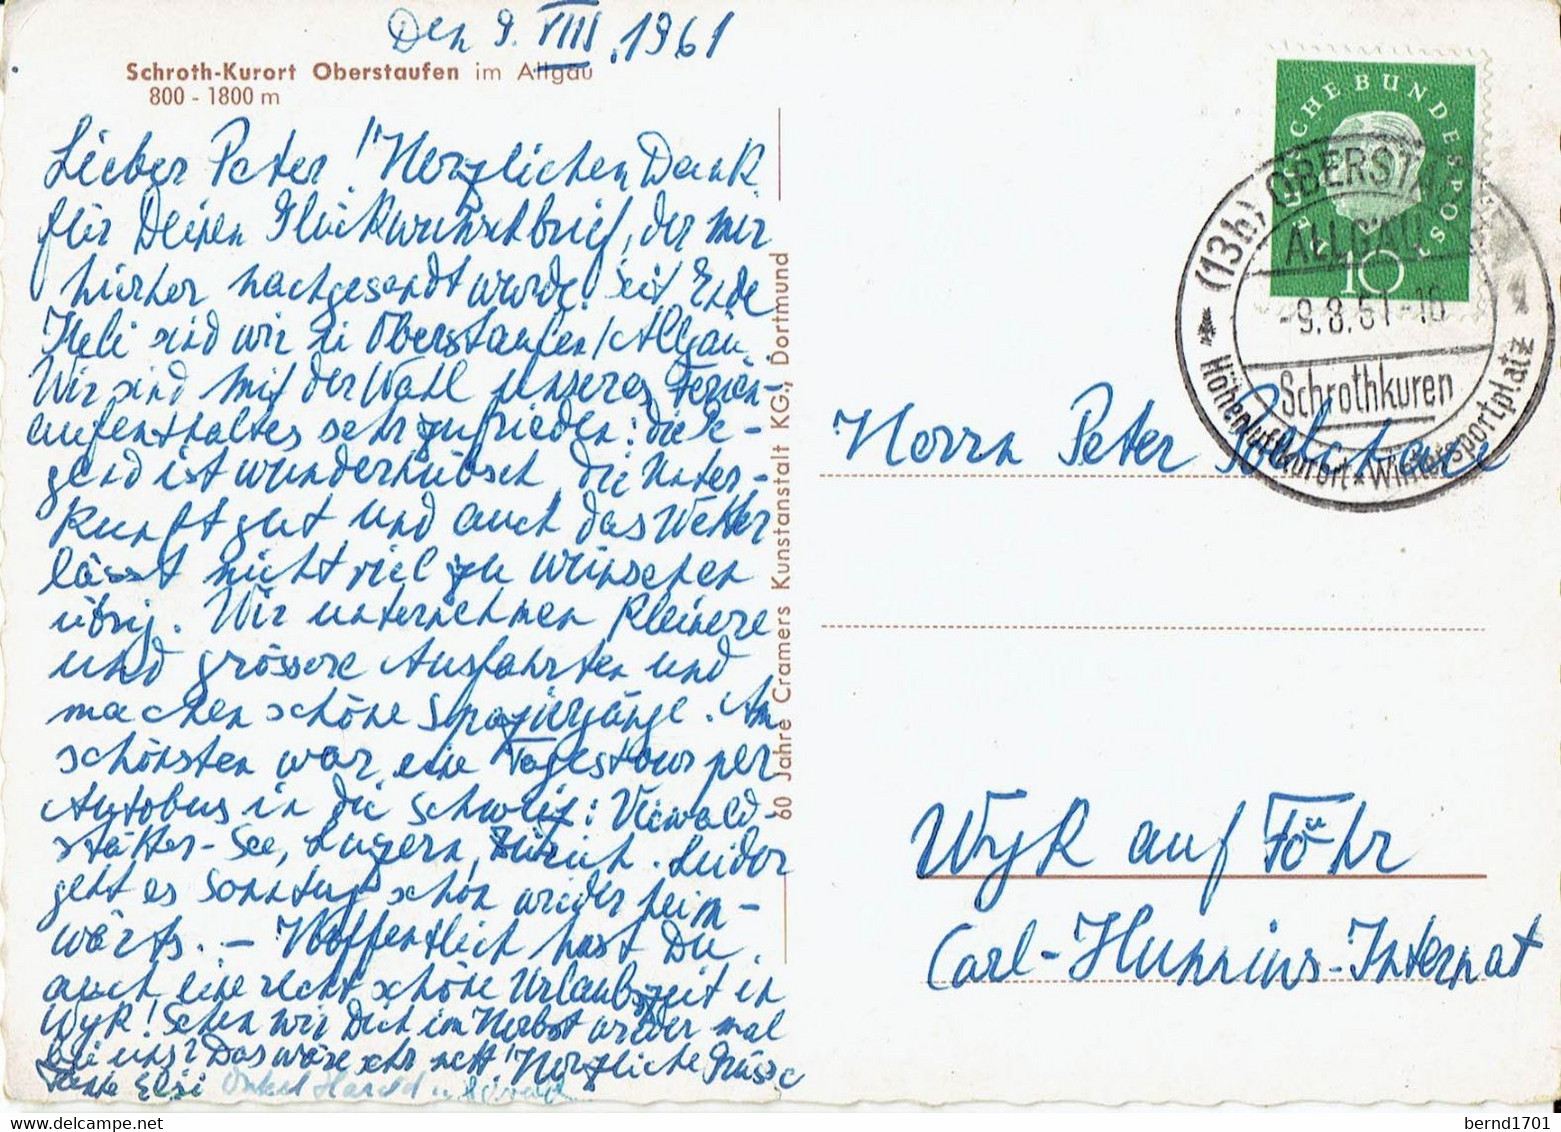 Den 9. VIII. 1961
Schroth-Kurort Oberstaufen im Allgäu
800 - 1800 m
Lieber Peter! Herzlichen Dank
für Deinen Glückwunschbrief, der mir
hierher nachgesandt wurde. Seit Ende
Juli sind wir in Oberstaufen/Allgäu.
Wir sind mit der Wahl unseres Ferien-
aufenthaltes sehr zufrieden: die Ge-
gend ist wunderhübsch die Unter-
kunft gut und auch das Wetter
lässt nicht viel zu wünschen
übrig. Wir unternehmen kleinere
und grössere Ausfahrten und
machen schöne Spaziergänge. Am
schönsten war eine Tagestour per
Autobus in die Schweiz: Vierwald-
stätter-See, Luzern, Zürich. Leider
geht es Sonntag schon wieder heim-
wärts. - Hoffentlich hast Du
auch eine recht schöne Urlaubszeit in
Wyk! Sehen wir Dich im Herbst wieder mal
bei uns? Das wäre sehr nett! Herzliche Grüsse
Tante Elsi Onkel Harald u.
60 Jahre Cramers Kunstanstalt KG, Dortmund
DEUTSCHE BUNDESPOST
10
(13b) OBERSTAUFEN
ALLGÄU
-9.8.61-16
Schrothkuren
Höhenluftkurort * Wintersportplatz
Herrn Peter
Wyk auf Föhr
Carl-Hunnius-Internat
bernd1701